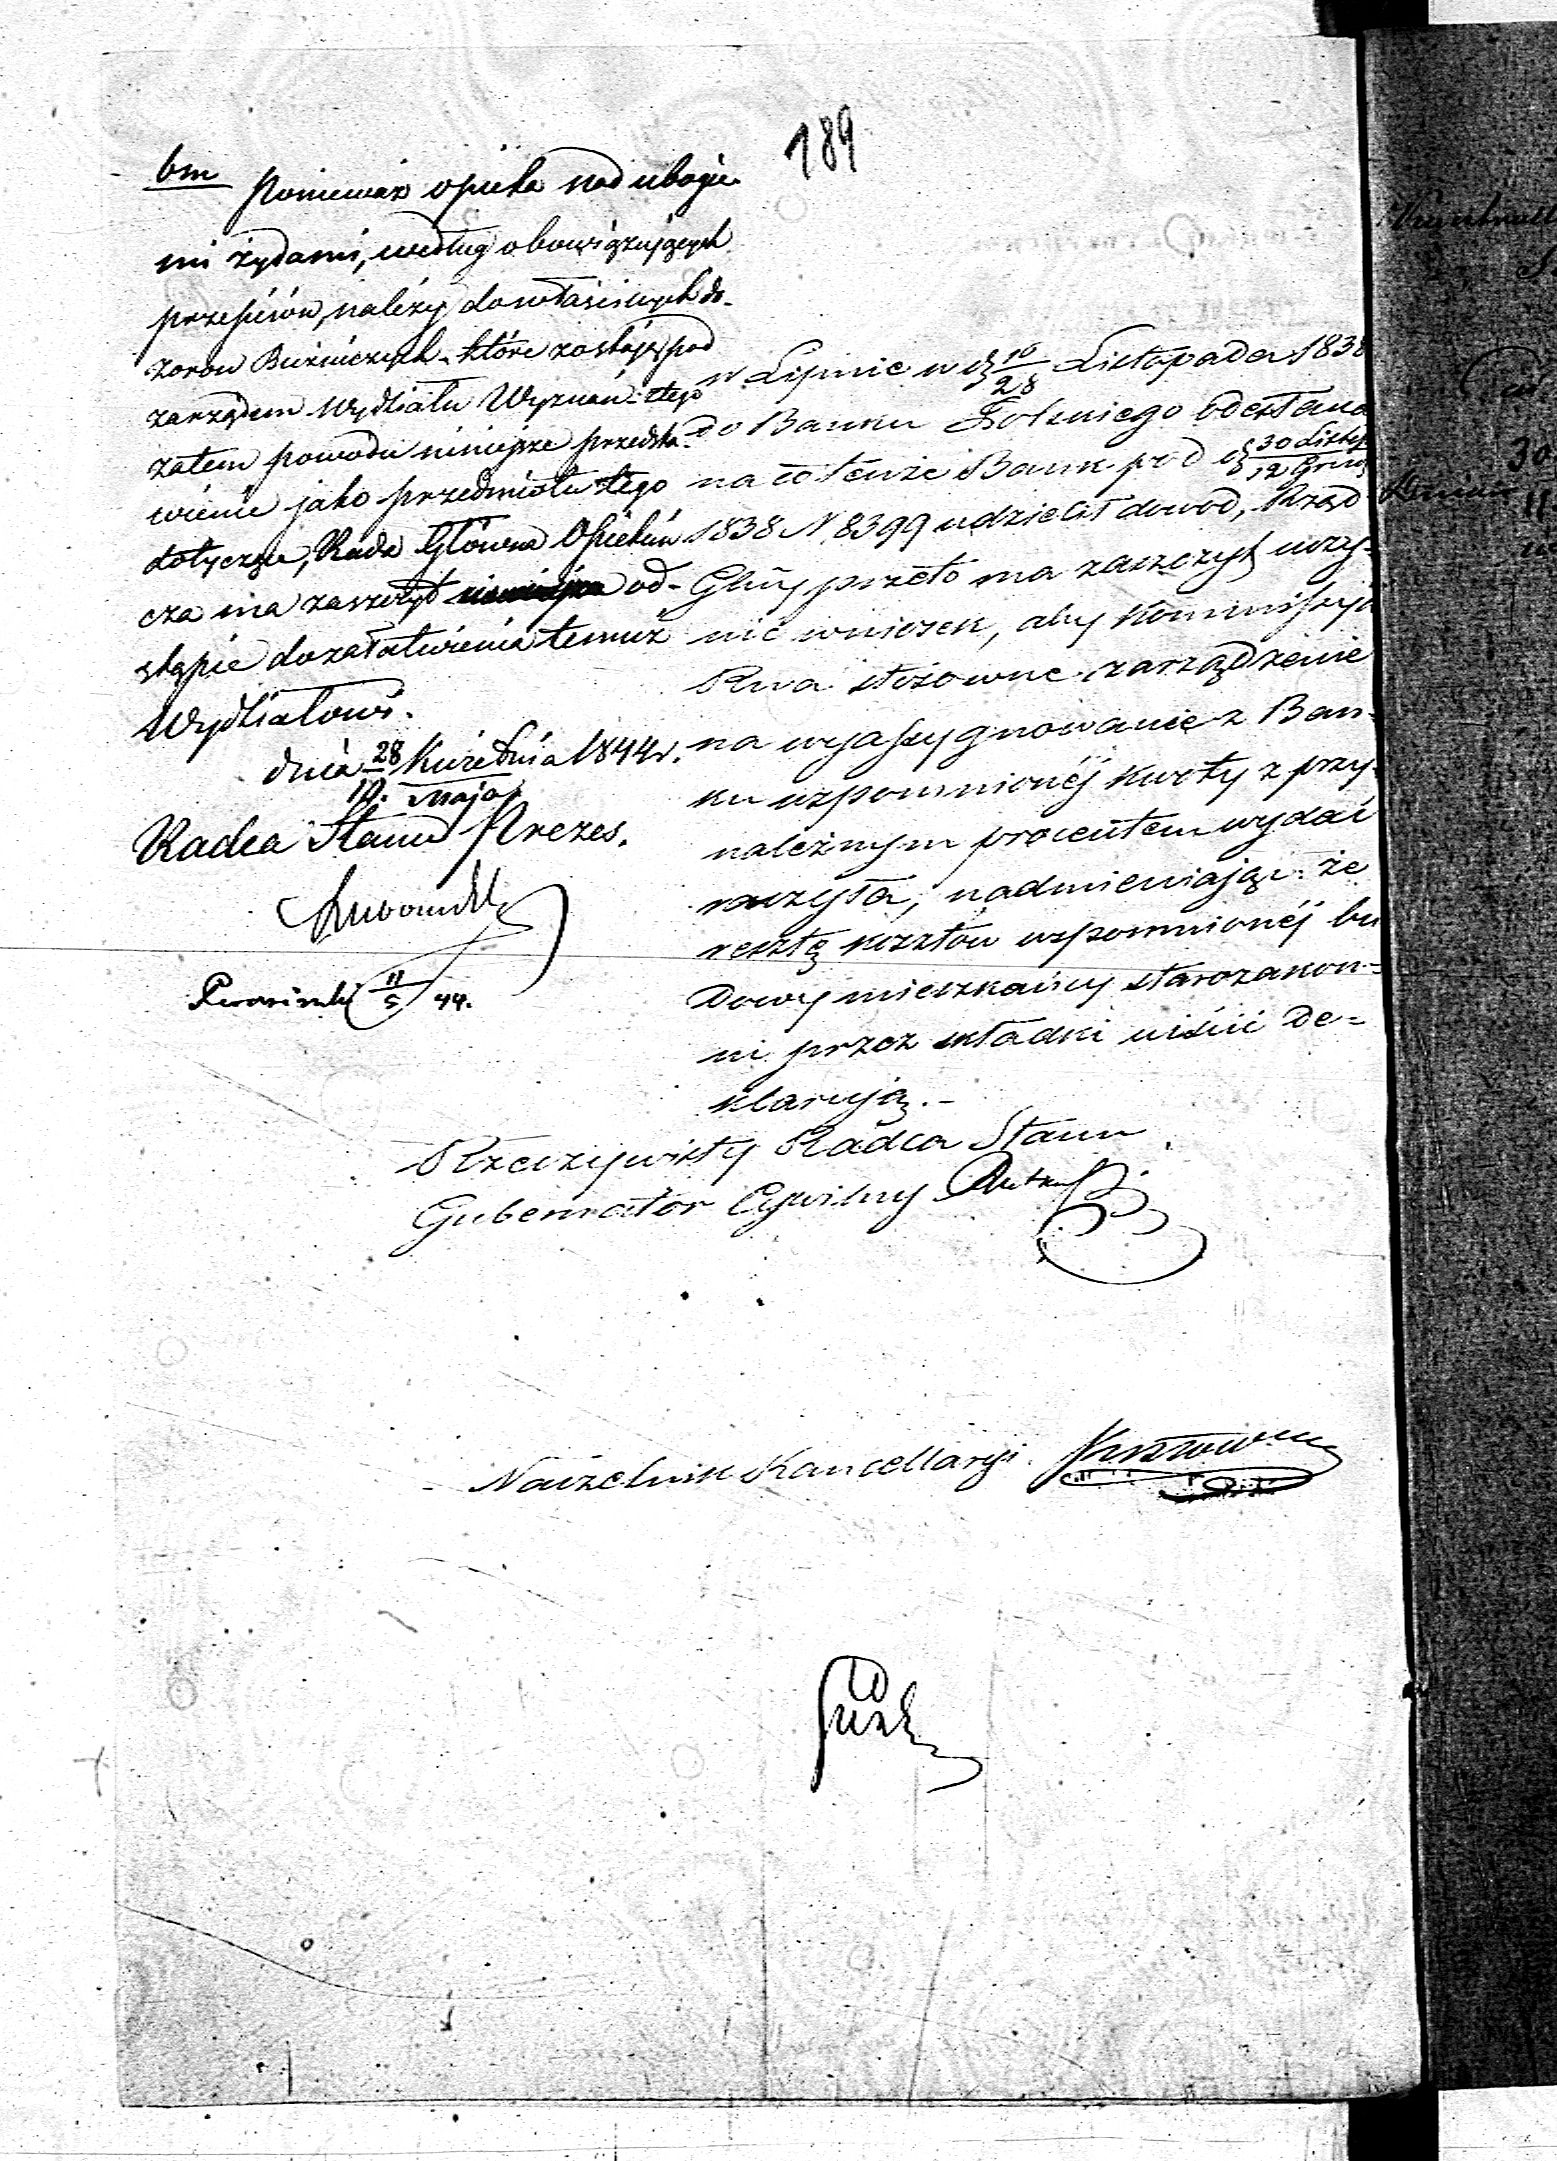 189
bm Ponieważ opieka nad ubogie-
mi żydami, według obowiązujących
przepisów, należy do właściwych do-
zorów Bużniczych które zostają pod
zarządem Wydziału Wyznań: tego
zatem powodu niniejsze przedsta-
wienie jako przedmiotu tego
dotyczące, Rada Główna Opiekuń
cza ma zaszczyt od-
stąpić do załatwienia temuż
Wydziałowi.
dnia 28/10 Kwietnia/Maja 1844 r.
Radca Stanu Prezes.
11/5 44.
w Lipnie w d 16/28 Listopada 1838
do Banku Polskiego odesłana
na co tenże Bank pod d 30 Listop/12 Grud
1838 N. 8399 udzielił dowod, Rząd
Glny przeto ma zaszczyt uczy-
nić wniosek, aby Kommissyja
Rwa stosowne zarządzenie
na wyassygnowanie z Ban-
ku wspomnionéj kwoty z przy-
należnym procentem wydać
raczyła, nadmieniając: że
resztę kosztów wspomnionéj bu
dowy mieszkańcy starozakon-
ni przez składki uiścić de-
klarują.-
Rzeczywisty Radca Stanu
Gubernator Cywilny
Naczelnik Kancellaryi